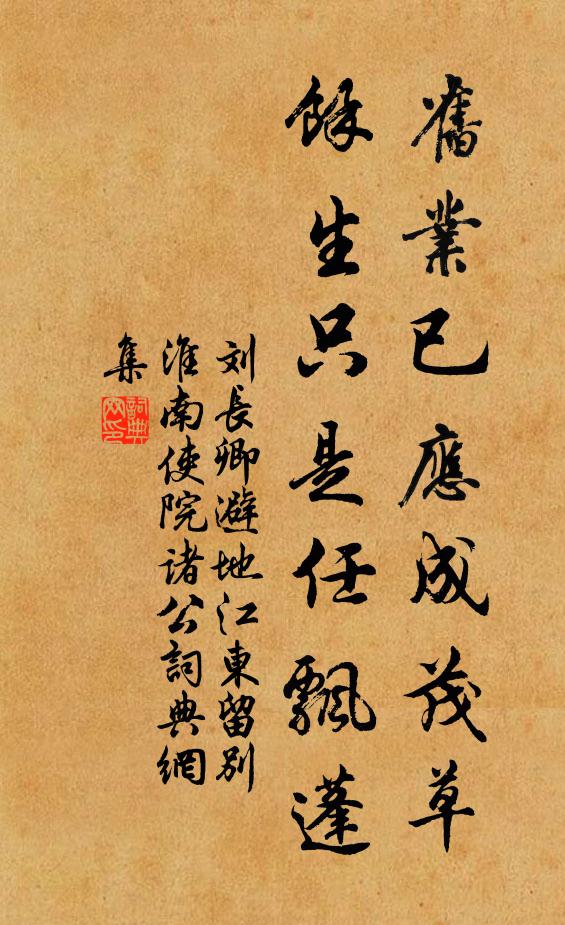 舊業已應成茂草
餘生只是任飄蓬
刘長卿避地江東留別
淮南使院诸公詞典網
集
詞典網印